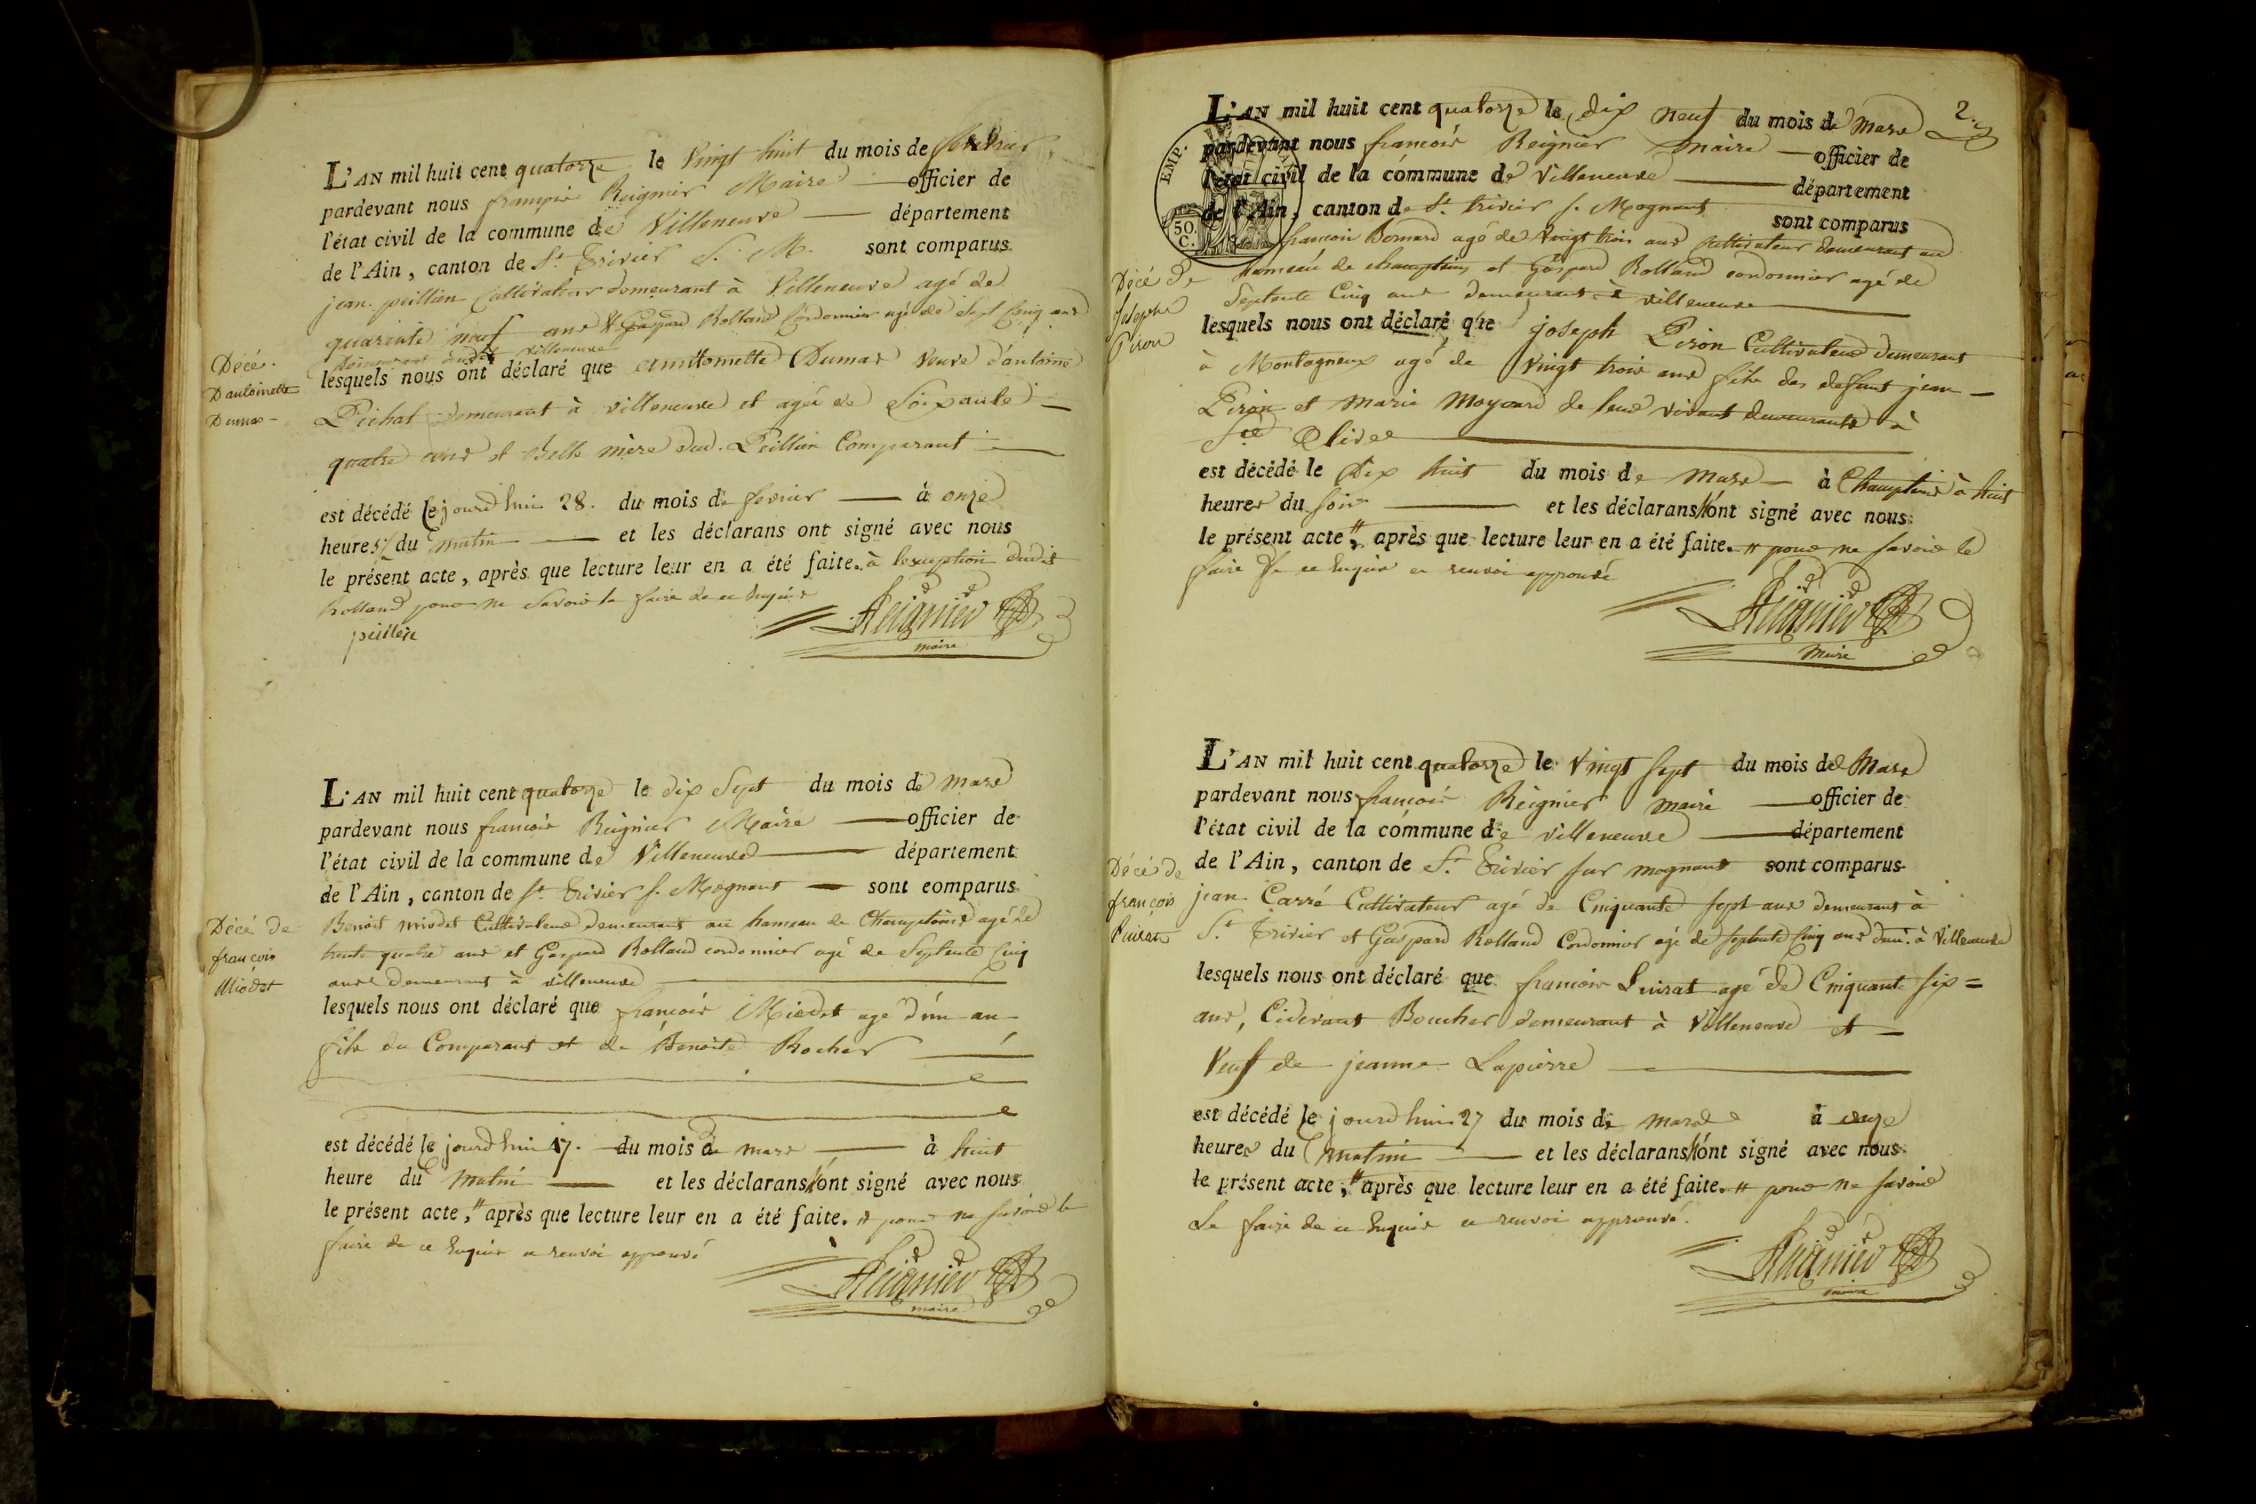 L'AN mil huit cent quatorze le Vingt huit du mois de fevrier
pardevant nous françois Reignier Maire officier de
l'état civil de la commune de Villeneuve département
de l'Ain, canton de St Trivier S. M. sont comparus
jean peillien Cultivateur demeurant à Villeneuve agé de
quarante neuf ans & Gaspard Rolland Cordonnier agé de Sept Cinq ans
demeurant audit villeneuve
Décé.
Dantoinette
Dumas
lesquels nous ont déclaré que anttoinette Dumas Veuve d'antoine
Pichat demeurant à villeneuve et agée de Soixante
quatre ans et Belle mère dud. Peillien Comparant
est décédé le jourdhui 28. du mois de fevrier à onze
heures du matin et les déclarans ont signé avec nous
le présent acte, après que lecture leur en a été faite. à lexception dudit
Rolland pour ne Savoir le faire de ce Enquis
peillien Reignier
maire
L'AN mil huit cent quatorze le dix Sept du mois de Mars
pardevant nous francois Reignier Maire officier de
l'état civil de la commune de Villeneuve département
de l'Ain, canton de St Trivier S. Mognens sont comparus
Décé de
françois
Miodet
Benoit miodet Cultivateur demeurant au hameau de Champteins agé de
trente quatre ans et Gaspard Rolland cordonnier agé de Septente Cinq
ans demeurant à villeneuve
lesquels nous ont déclaré que françois Miodet age d'un an
fils du Comparant et de Benoite Rocher
est décédé le jourdhui 17. du mois de mars à huit
heure du matin et les déclarans n'ont signé avec nous
le présent acte, # après que lecture leur en a été faite. # pour ne savoir le
faire de ce Enquis ce renvoi approuvé
Reignier
maire
2.
L'AN mil huit cent quatorze le dix neuf du mois de Mars
pardevant nous françois Reignier maire officier de
l'état civil de la commune de Villeneuve département
de l'Ain, canton de St. trivier s. Mognens sont comparus
EMP.
50.
C.
francois Bernard agé de Vingt trois ans Cultivateur demeurant au
hameau de champteins et Gaspard Rolland cordonnier agé de
Septente Cinq ans demeurant à villeneuve
Décé de
Joseph
Piron
lesquels nous ont déclaré que joseph Piron Cultivateur demeurant
à Montagneux agé de Vingt trois ans fils des defunt jean
Piron et marie Moyard de leur vivant demeurants à
Ste Olive
est décédé le Dix huit du mois de Mars à Champteins à huit
heures du soir et les déclarans n'ont signé avec nous
le présent acte, # après que lecture leur en a été faite. # pour ne savoir le
faire de ce Enquis ce renvoi approuvé
Reignier
Maire
L'AN mil huit cent quatorze le Vingt Sept du mois de Mars
pardevant nous françois Reignier maire officier de
l'état civil de la commune de villeneuve département
de l'Ain, canton de St. Trivier sur mognens sont comparus
Décé de
françois
jean Carré Cultivateur agé de Cinquante sept ans demeurant à
St. Trivier et Gaspard Rolland Cordonnier agé de septente Cinq ans dem. à Villeneuve
lesquels nous ont déclaré que francois Luirat agé de Cinquante six =
ans, Cidevant Boucher demeurant à Villeneuve et
Veuf de jeanne Lapierre
est décédé le jourdhui 27 du mois de mars à onze
heures du matin et les déclarans n'ont signé avec nous
le présent acte, # après que lecture leur en a été faite. # pour ne savoir
Le faire de ce Enquis ce renvoi approuvé.
Reignier
maire